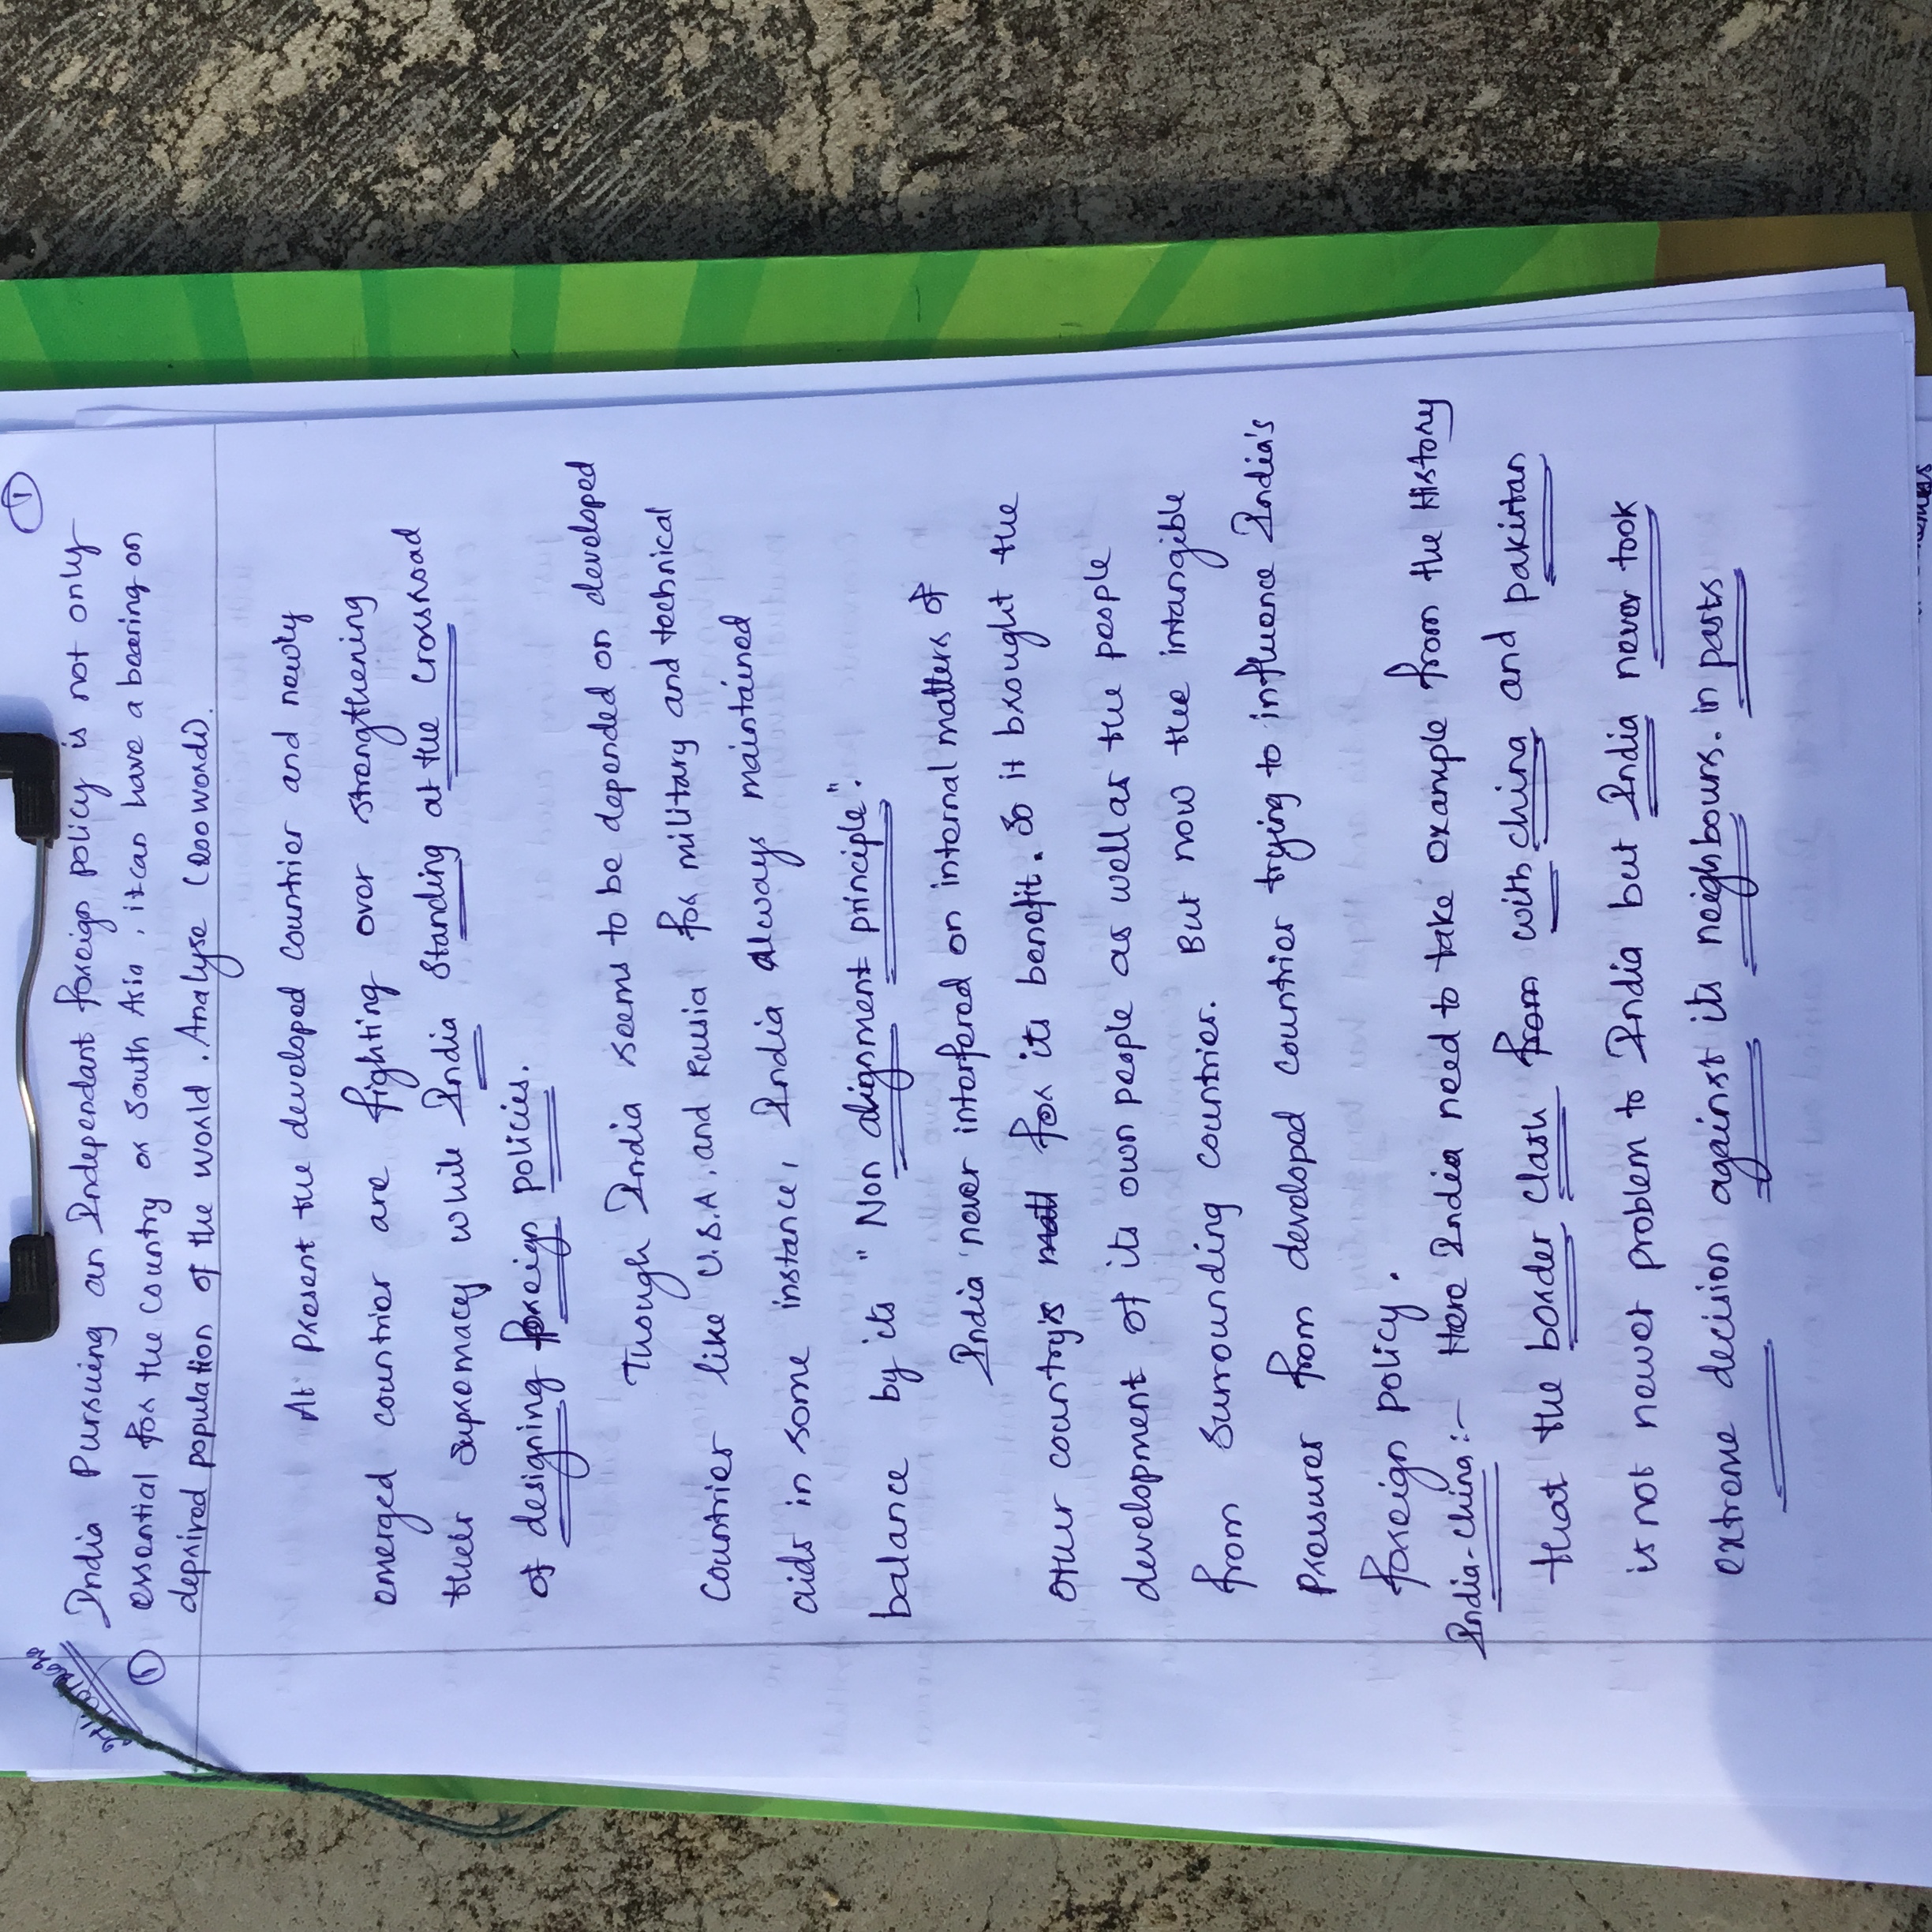 ①
India Pursuing an Independant foreign policy is not only
⑥ essential for the country or South Asia, it can have a beering on
deprived population of the world. Analyse (200 words).
At present the developed countries and newly
emerged countries are fighting over strengthening
their supremacy while India standing at the crossroad
of designing foreign policies.
Though India seems to be depended on developed
countries like U.S.A, and Russia for military and technical
aids in some instance, India always maintained
balance by its "Non alignment principle".
India never interfered on internal matters of
other country's for its benefit. So it brought the
development of its own people as well as the people
from surrounding countries. But now the intangible
pressures from developed countries trying to influence India's
foreign policy.
India-China:- Here India need to take example from the History
that the border clash from with china and pakistan
is not newer problem to India but India never took
extreme decision against its neighbours. in pasts